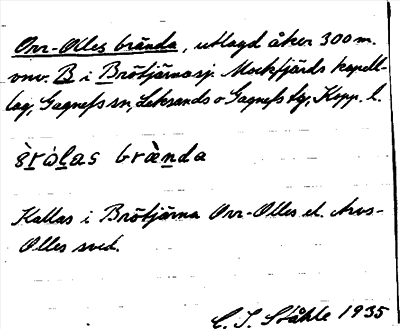 Orr-Olles brända, utlagd åker 300 m.
onv. B i Brötjärnasj Mockfjärds kapell-
lag, Gagnefs sn, Leksands o Gagnefs tg, Kopp. l.
brǽnda
Kallas i Brötjärna Orr-Olles el. Arvs-
Olles sved.
C. I. Ståhle 1935